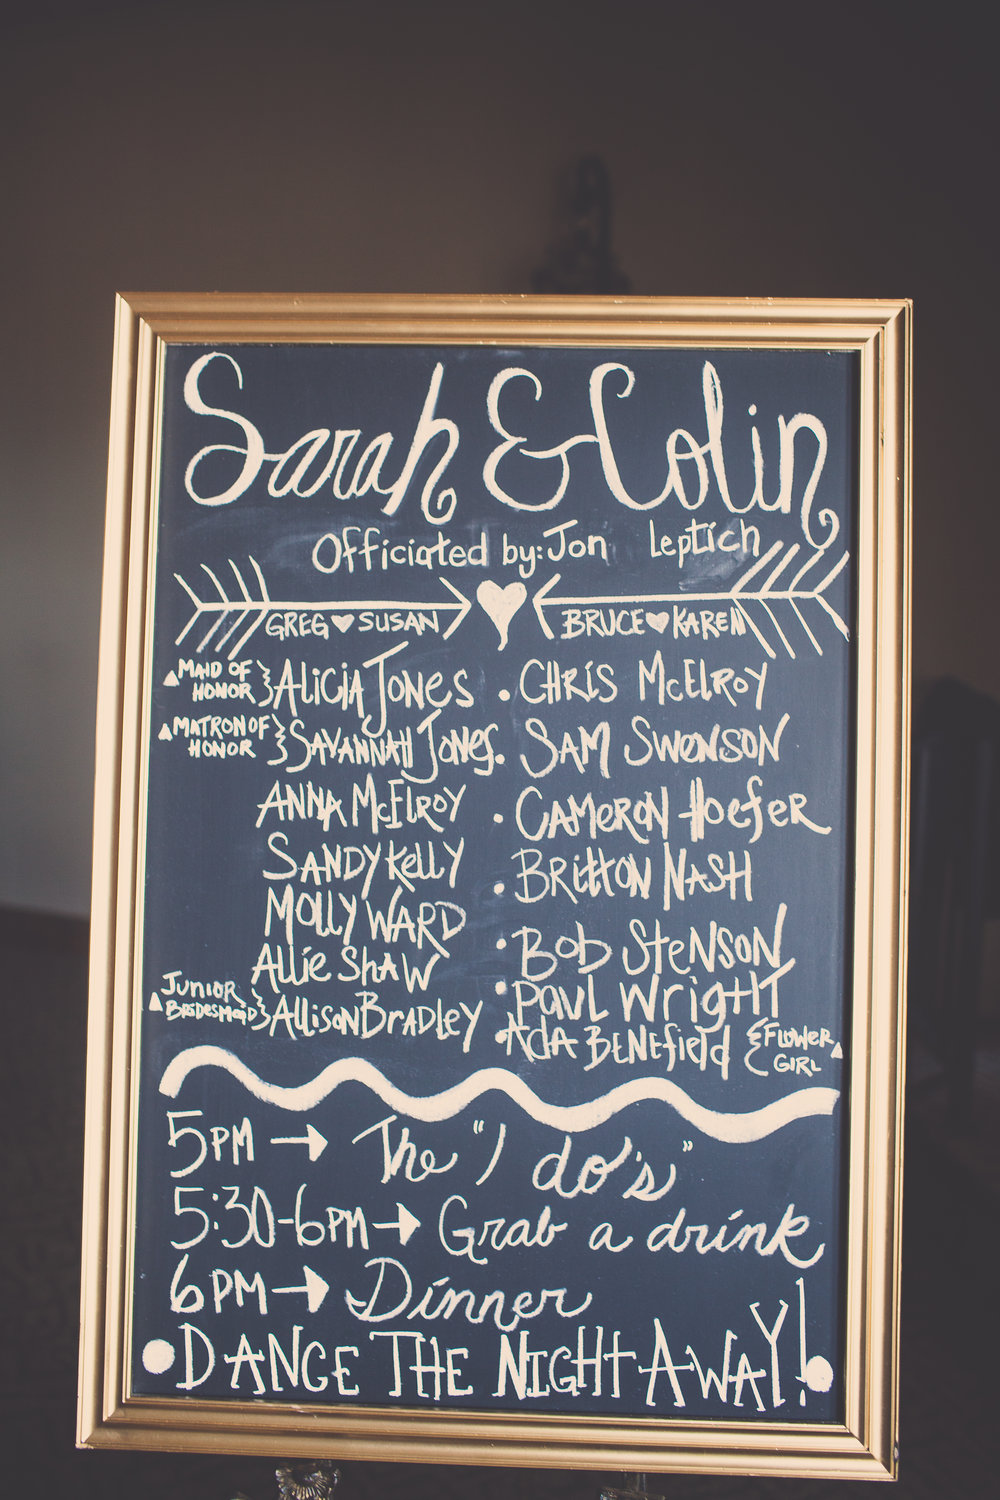 Sarah & Colin
Officiated by: Jon Leptich
GREG ♥ SUSAN BRUCE ♥ KAREN
MAID OF HONOR } ALICIA JONES • CHRIS McELROY
MATRON OF HONOR } SAVANNAH JONES • SAM SWENSON
ANNA McELROY • CAMERON HOEFER
SANDY KELLY • BRITTON NASH
MOLLY WARD • BOB STENSON
ALLIE SHAW • PAUL WRIGHT
JUNIOR BRIDESMAID } ALLISON BRADLEY • ADA BENEFIELD { FLOWER GIRL
5PM → The "I do's"
5:30-6PM → Grab a drink
6PM → Dinner
• DANCE THE NIGHT AWAY! •